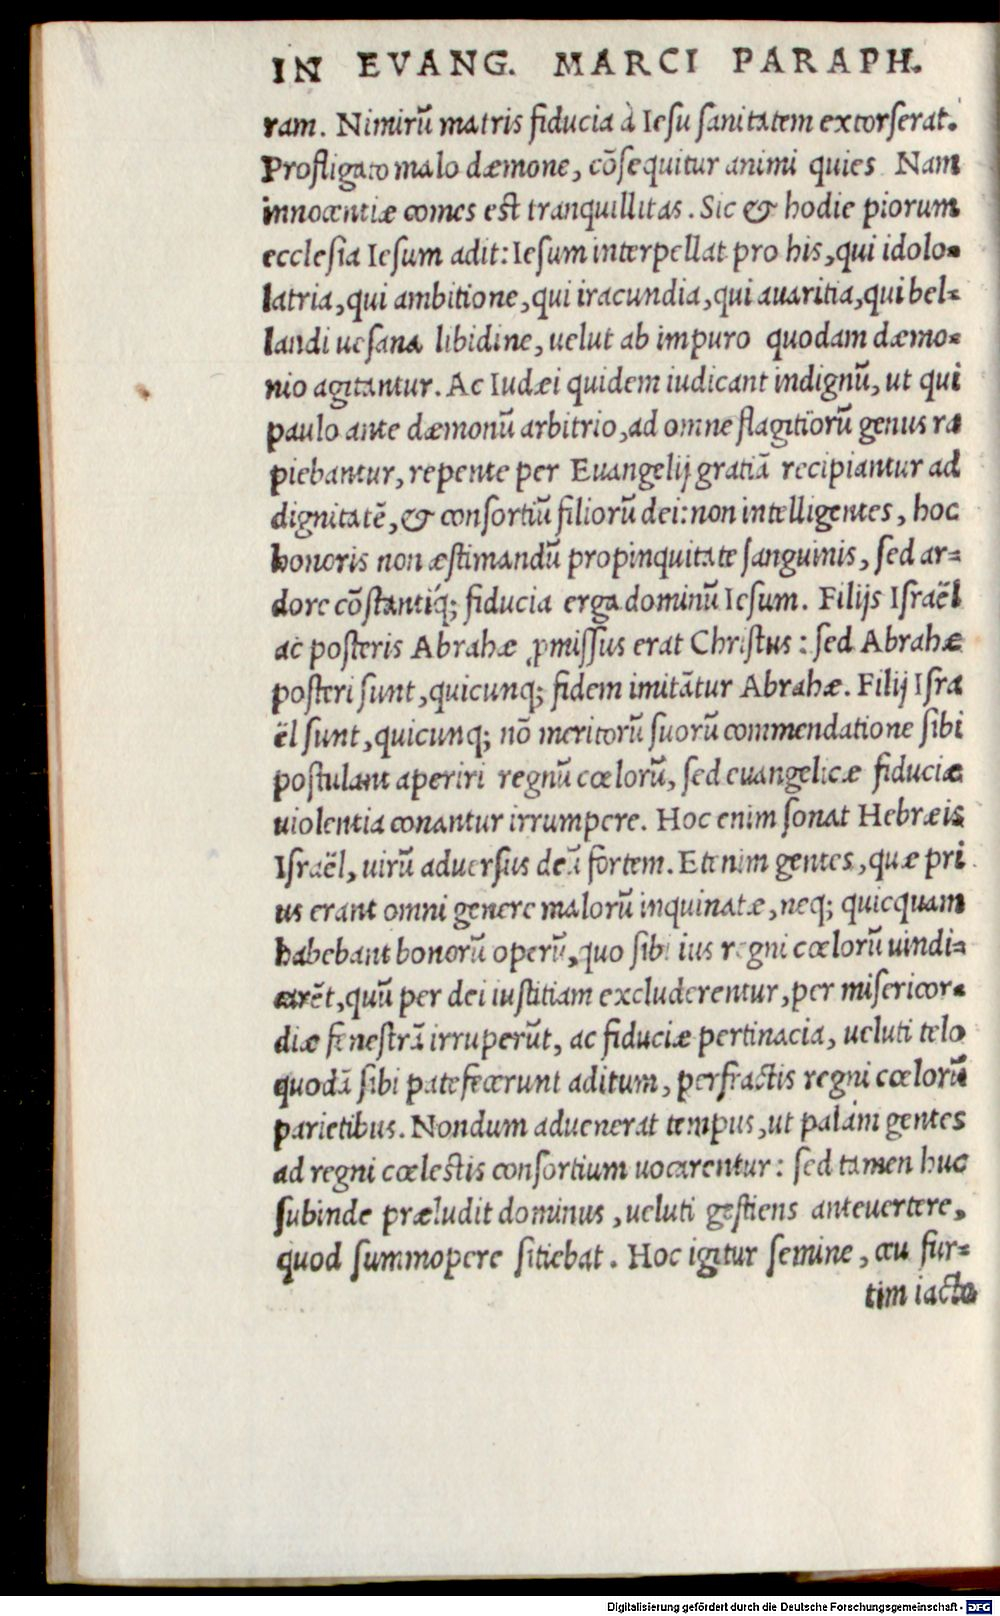 IN EVANG. MARCI PARAPH.
ram. Nimirũ matris fiducia à Iesu sanitatem extorserat.
Profligato malo dæmone, cõsequitur animi quies. Nam
innocentiæ comes est tranquillitas. Sic & hodie piorum
ecclesia Iesum adit: Iesum interpellat pro his, qui idolo-
latria, qui ambitione, qui iracundia, qui auaritia, qui bel-
landi uesana libidine, uelut ab impuro quodam dæmo-
nio agitantur. Ac Iudæi quidem iudicant indignũ, ut qui
paulo ante dæmonũ arbitrio, ad omne flagitiorũ genus ra
piebantur, repente per Euangelij gratiã recipiantur ad
dignitatẽ, & consortiũ filiorũ dei: non intelligentes, hoc
honoris non æstimandũ propinquitate sanguinis, sed ar-
dore cõstantiq́; fiducia erga dominũ Iesum. Filijs Israël
ac posteris Abrahæ ꝓmissus erat Christus: sed Abrahæ
posteri sunt, quicunq; fidem imitãtur Abrahæ. Filij Isra
ël sunt, quicunq; nõ meritorũ suorũ commendatione sibi
postulant aperiri regnũ cœlorũ, sed euangelicæ fiduciæ
uiolentia conantur irrumpere. Hoc enim sonat Hebræis
Israël, uirũ aduersus deũ fortem. Etenim gentes, quæ pri
us erant omni genere malorũ inquinatæ, neq; quicquam
habebant bonorũ operũ, quo sibi ius regni cœlorũ uindi-
carẽt, quũ per dei iustitiam excluderentur, per misericor-
diæ fenestrã irruperũt, ac fiduciæ pertinacia, ueluti telo
quodã sibi patefecerunt aditum, perfractis regni cœlorũ
parietibus. Nondum aduenerat tempus, ut palàm gentes
ad regni cœlestis consortium uocarentur: sed tamen huc
subinde præludit dominus, ueluti gestiens anteuertere,
quod summopere sitiebat. Hoc igitur semine, ceu fur-
tim iacto
Digitalisierung gefördert durch die Deutsche Forschungsgemeinschaft - DFG